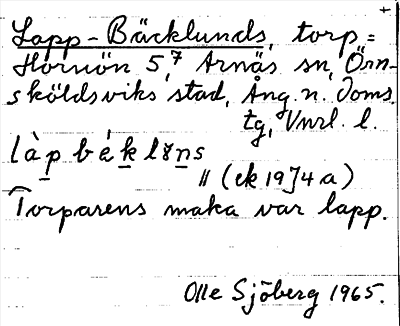 Lapp-Bäcklunds, torp =
Hornön 5⁷, Arnäs sn, Örn-
sköldsviks stad, Ång. n. doms.
tg, Vnrl. l.
làpbéklɤns
" (ek 19J4a)
Torparens maka var lapp.
Olle Sjöberg 1965.